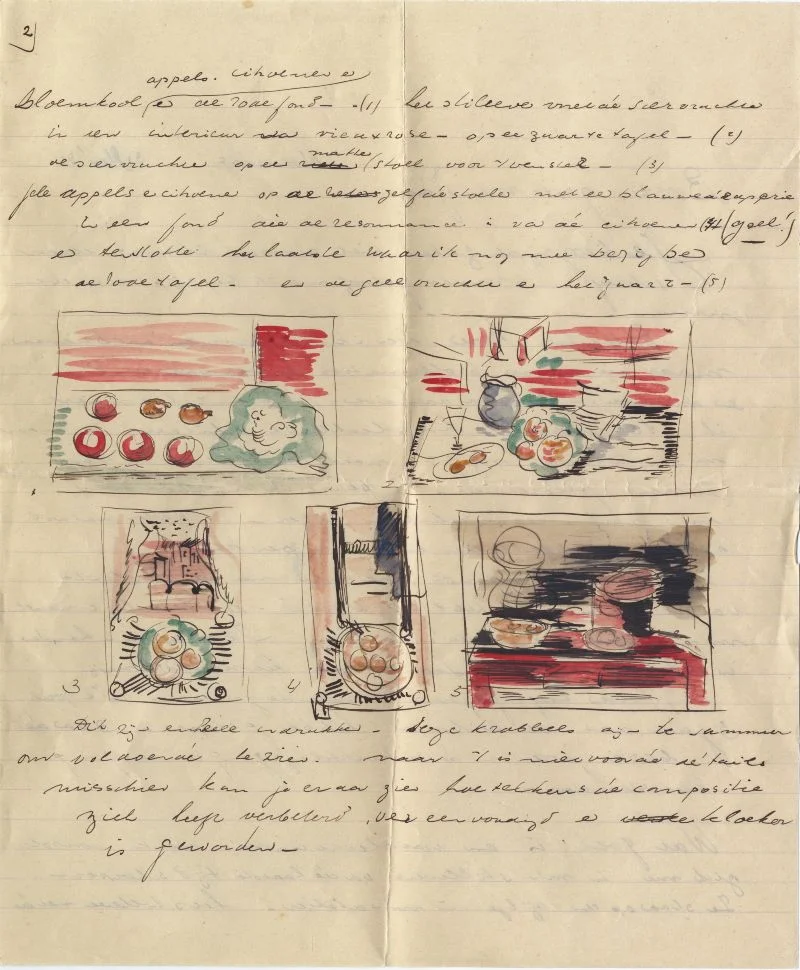 2
appels. citroenen e
bloemkool (e de rode fond – (1) het stilleve met de siervruchte
in een interieur va vieux rose – op ee zwarte tafel – (2)
matte
de siervruchte op ee (stoel voor 't venster – (3)
de appels e citroene op de zelfde stoele met ee blauwe draperie
e een fond die de resonnance is va de citroene (4) (geel!)
e tenslotte het laatste waar ik nog mee bezig be
de rode tafel – e de gele vruchte e het zwart – (5)
1
2
3
4
5
Dit zij enkele indrukke – deze krabbels zij te summier
om voldoende te zien. maar 't is niet voor de détails
misschien kan je eraa zien hoe telkens de compositie
zich heeft verbeterd, vereenvoudigd e kloeker
is geworden –